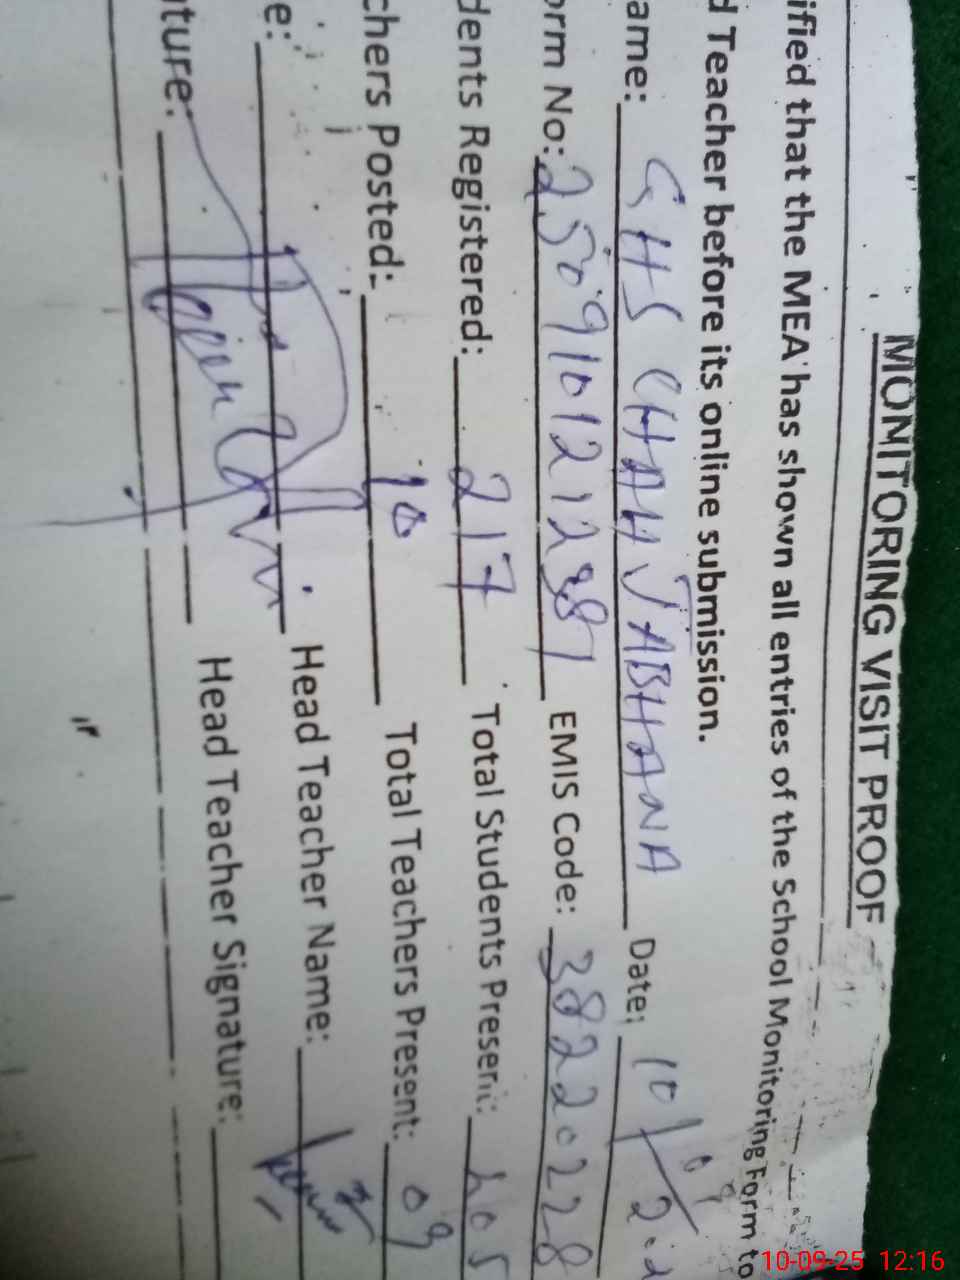 MONITORING VISIT PROOF
ified that the MEA has shown all entries of the School Monitoring Form to
d Teacher before its online submission.
ame: GHS CHAH JABHANA Date: 10/
orm No: EMIS Code: 38220228
dents Registered: 217 Total Students Present:
chers Posted: 10 Total Teachers Present: 09
e: Head Teacher Name:
ature: Head Teacher Signature:
10-09-25 12:16